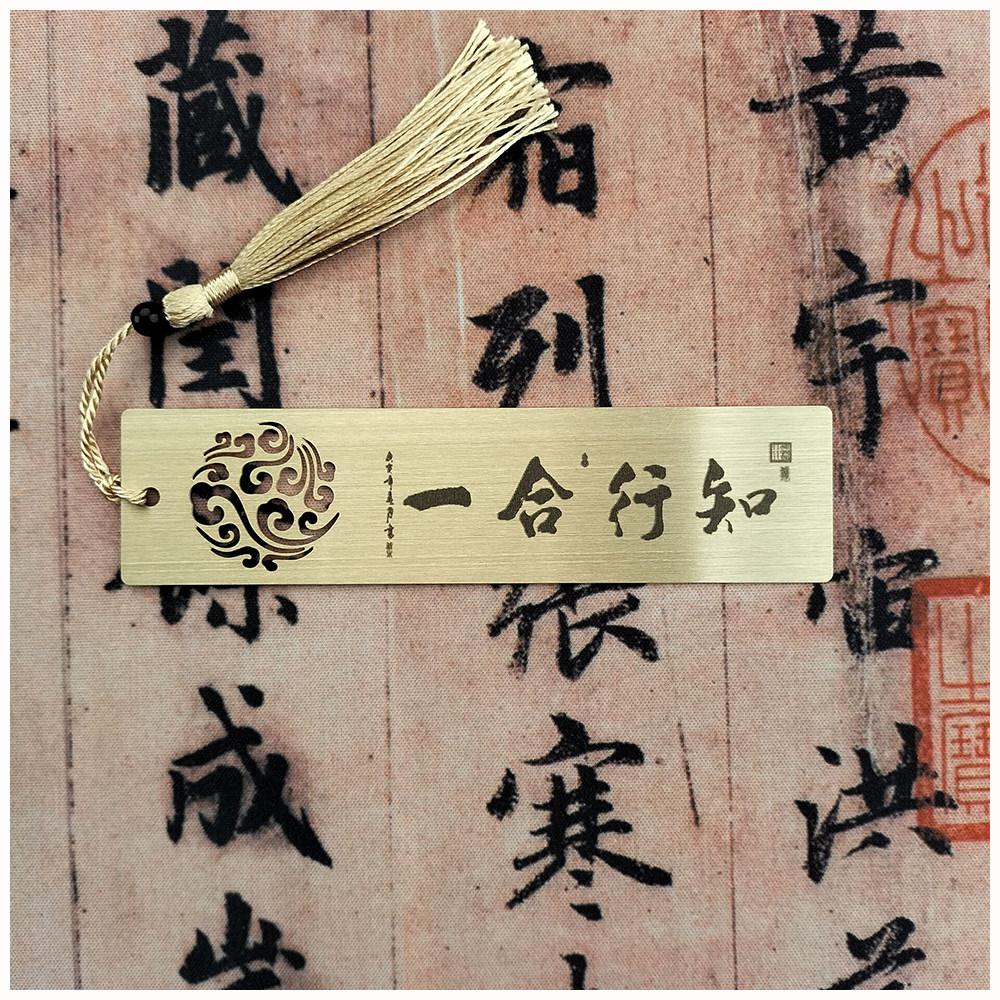 知行合一
黄宇宙洪
宿列張寒
藏閏餘成歲